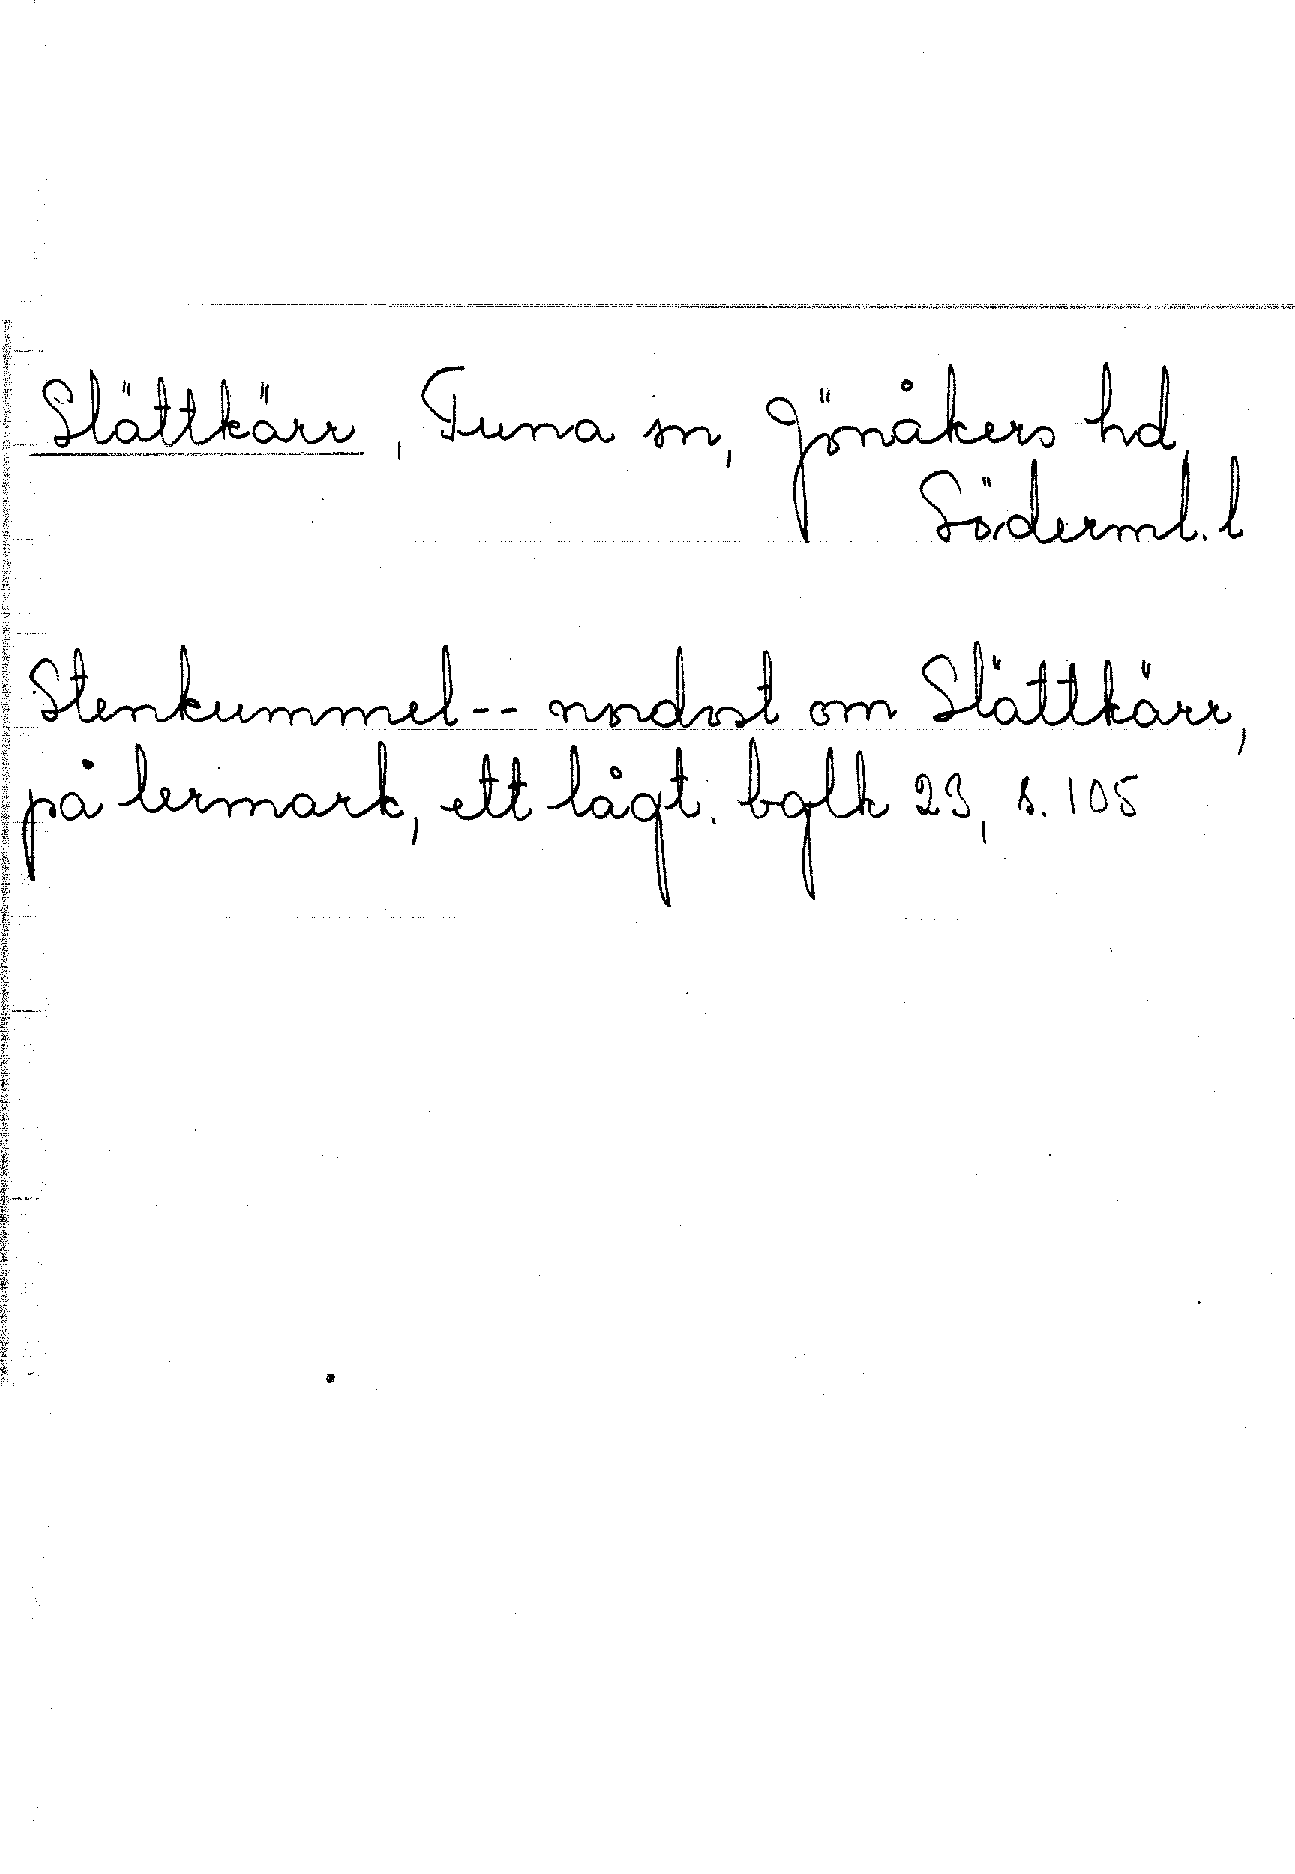 Slättkärr, Tuna sn, Jönåkers hd,
Söderml. l
Stenkummel -- nordost om Slättkärr,
på lermark, ett lågt. bglk 23, s. 105